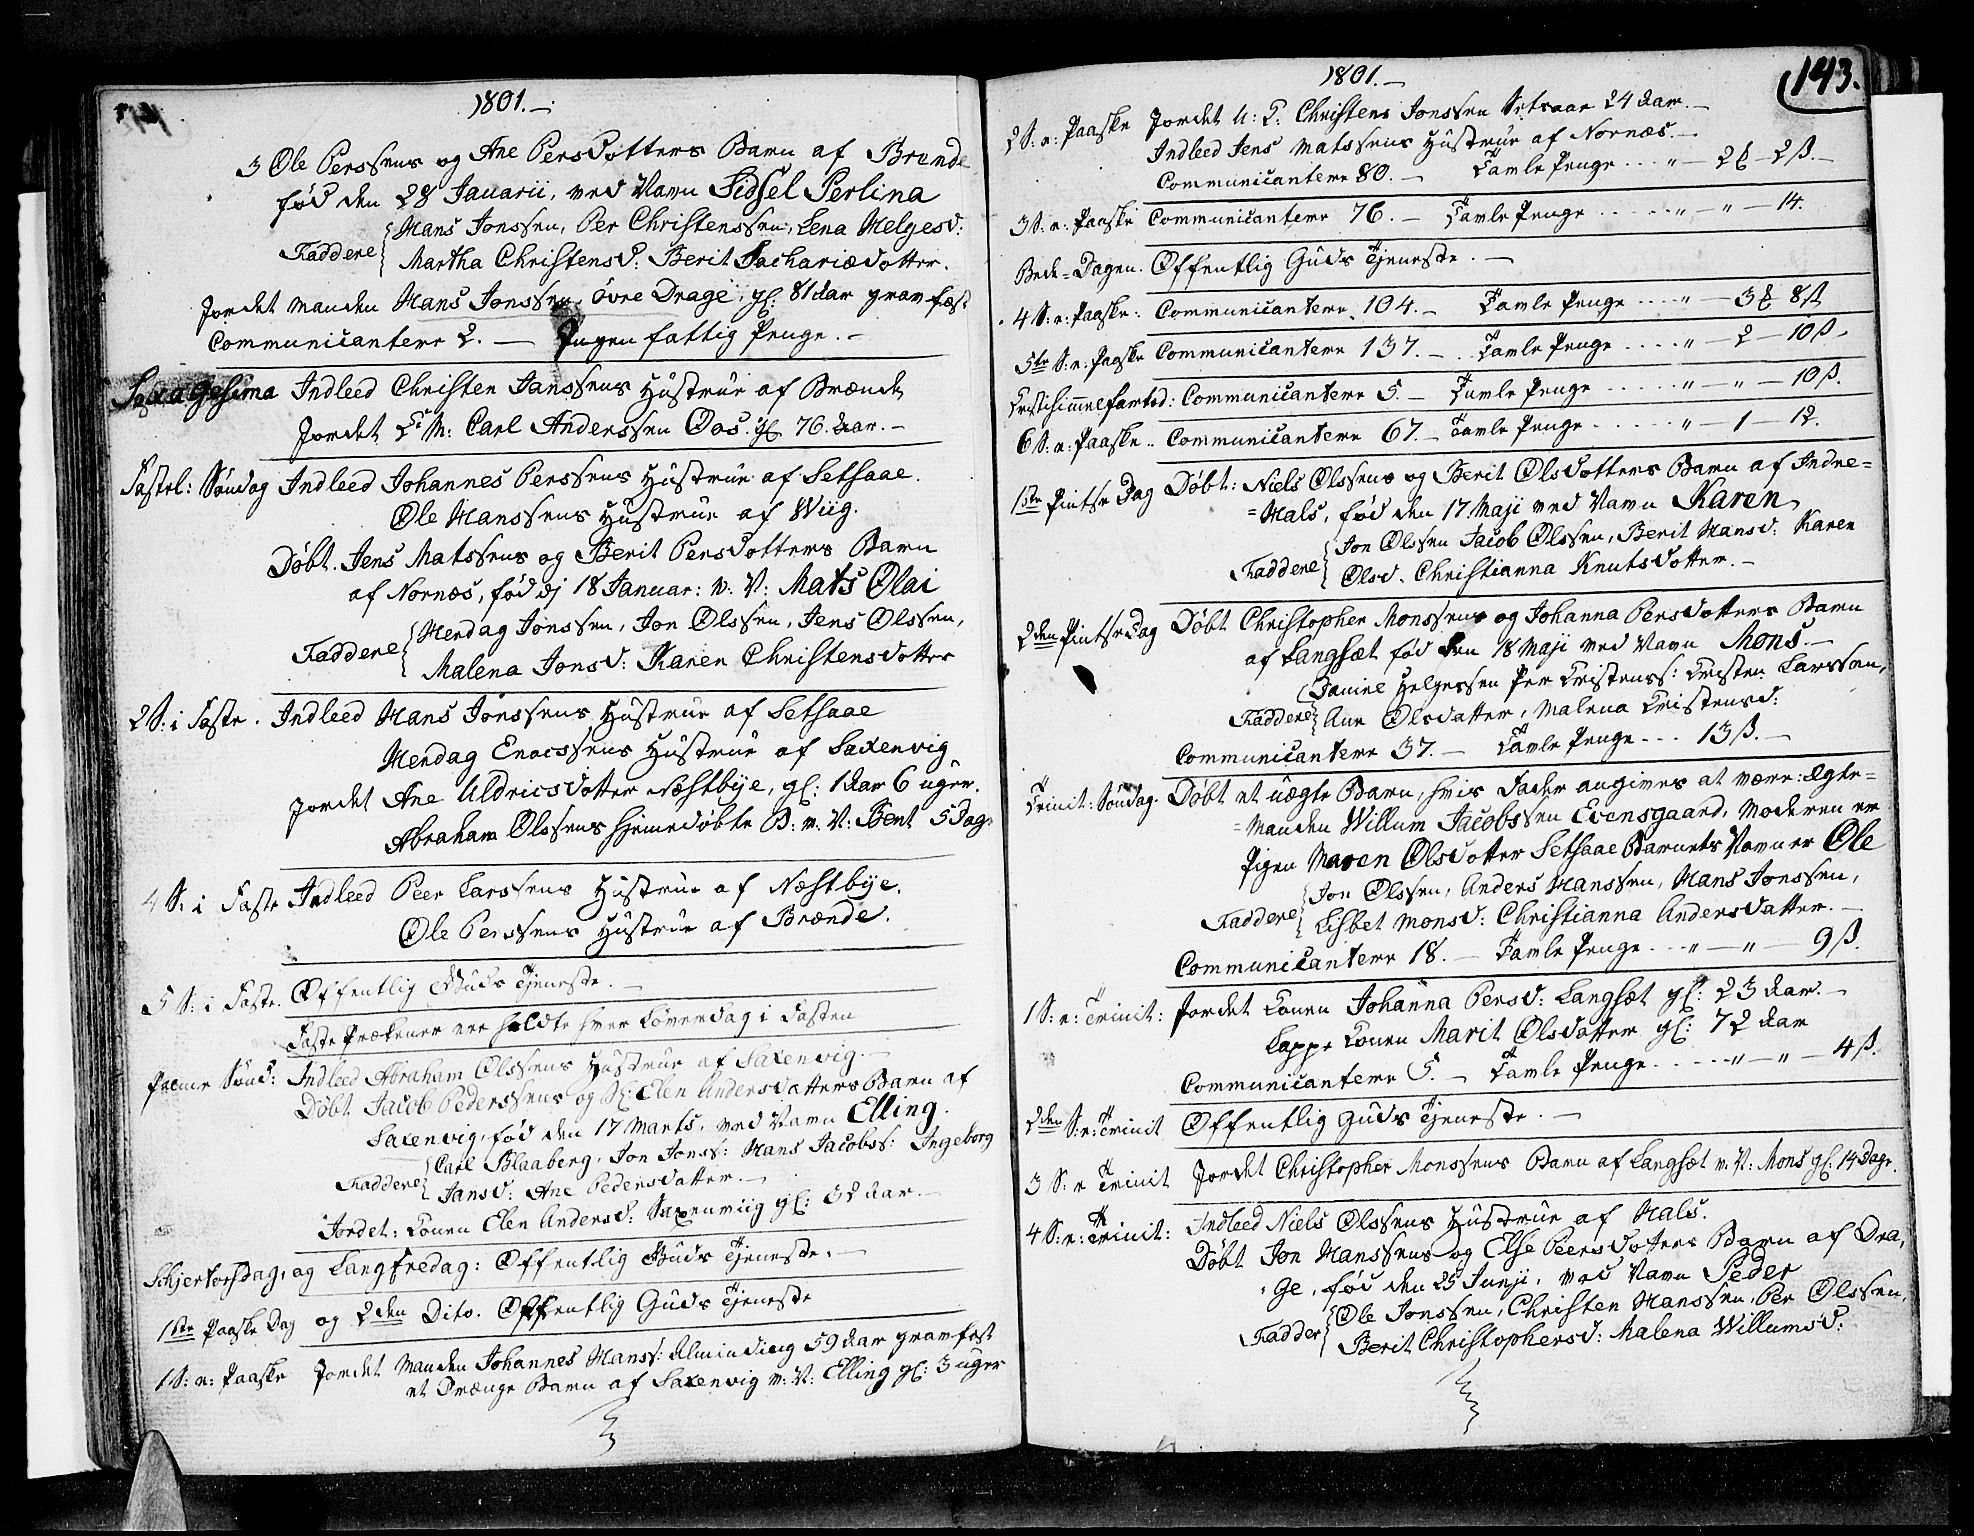 1801.
3 Ole Perssens og Ane Persdotters Barn af Brende
fød den 28 Januarii, ved Navn Sidsel Perlina
Faddere Hans Jonssen, Per Christenssen, Lena Helgesd:
Martha Christensd: Berit Sachariædotter.
Jordet Manden Hans Jonssen, øvre Drage, gl: 81 Aar gravfæst
Communicantere 2. — Ingen fattig Penge. —
Sexagesima Indleed Christen Janssens Hustrue af Brænde
Jordet Carl Anderssen Oos. gl: 76. Aar. —
Fastel: Søndag Indleed Johannes Perssens Hustrue af Setsaae.
Ole Hanssens Hustrue af Wiig.
Døbt. Jens Matssens og Berit Persdotters Barn
af Nornæs, fød dj 18 Januar: v. N: Mats Olai
Faddere Herdag Jonssen, Jon Olssen, Jens Olssen,
Malena Jonsd: Karen Christensdotter
2 S: i Faste. Indleed Hans Jonssens Hustrue af Setsaae
Herdag Enocssens Hustrue af Saxenvig
Jordet Ane Uldricsdotter Næstbye, gl: 1 Aar 6 uger.
Abraham Olssens hjemedøbte B: v. N: Bent 5 Dage
4 S: i Faste Indleed Peer Larssens Hustrue af Næstbye.
Ole Perssens Hustrue af Brænde.
5 S: i Faste. Offentlig Guds Tjeneste. —
Faste Prækener ere holdte hver Løverdag i Fasten
Palme Sønd: Indleed Abraham Olssens Hustrue af Saxenvig. —
Døbt. Jacob Pederssens og Sl: Elen Andersdatters Barn af
Saxenvig, fød den 17 Marts, ved Navn Elling.
Faddere Carl Blaaberg, Jon Jonss: Hans Jacobss: Ingeborg
Jansd: Ane Pedersdatter. —
Jordet: Konen Elen Andersd: Saxenviig gl: 32 Aar. —
Schjertorsdag, og Langfredag: Offentlig Guds Tjeneste. —
1ste Paaske Dag og 2den Dito. Offentlig Guds Tjeneste
1 S: e: Paaske Jordet Manden Johannes Hanss: Alminding 59 Aar gravfæst
et Drænge Barn af Saxenvig v: N: Elling gl: 3 uger
1801. —
143.
2 S: e: Paaske Jordet U: K: Christens Jonssen Setsaae 24 Aar. —
Indleed Jens Matssens Hustrue af Nornæs. —
Communicantere 80. — Tavle Penge .... " — 2 — 2 ß. —
3 S: e: Paaske Communicantere 76. — Tavle Penge ...... " — " — 14.
Bede-Dagen. Offentlig Guds Tjeneste. —
4 S: e: Paaske: Communicantere 104. — Tavle Penge .... " — 3 8 ß
5te S: e: Paaske Communicantere 137. — Tavle Penge .... " — 2 — 10 ß.
Cristi himmelfartsd: Communicantere 5. — Tavle Penge ..... " — " — 10 ß.
6 S: e: Paaske .. Communicantere 67. — Tavle Penge ...... " — 1 — 12.
1ste Pintse Dag Døbt: Niels Olssens og Berit Olsdotters Barn af Indre=
=Hals, fød den 17. Maji ved Navn Karen
Faddere Jon Olssen Jacob Olssen, Berit Hansd: Karen
Olsd. Christianna Knutsdotter. —
2den Pintse Dag Døbt Christopher Monssens og Johanna Persdotters Barn
af Langsæt fød den 18 Maji ved Navn Mons —
Faddere Daniel Helgessen Per Cristenss: Cristen Larssen,
Ane Olsdatter, Malena Cristensd:
Communicantere 37. — Tavle Penge ... 13 ß. —
Trinit: Søndag. Døbt et uægte Barn, hvis Fader angives at være: Ægte=
=Manden Willum Jacobssen Evensgaard, Moderen er
Pigen Maren Olsdotter Setsaae Barnets Navn er Ole
Faddere Jon Olssen, Anders Hanssen, Hans Jonssen,
Lisbet Monsd: Christianna Andersdatter. —
Communicantere 18. — Tavle Penge ... " — " — 9 ß.
1 S: e: Trinit: Jordet Konen Johanna Persd: Langsæt gl: 23 Aar. —
Lappe Konen Marit Olsdatter gl: 72 Aar
Communicantere 5. — Tavle Penge ..... " — " — 4 ß.
2den S: e: Trinit Offentlig Guds Tjeneste. —
3 S: e Trinit Jordet Christopher Monssens Barn af Langsæt v: N: Mons gl: 14 Dage.
4 S: e: Trinit: Indleed Niels Olssens Hustrue af Hals.
Døbt Jon Hanssens og Else Peersdotters Barn af Dra,
ge, fød den 25 Junji, ved Navn Peder
Fadder Ole Jonssen, Christen Hanssen, Per Olssen,
Berit Christophersd: Malena Willumsd: